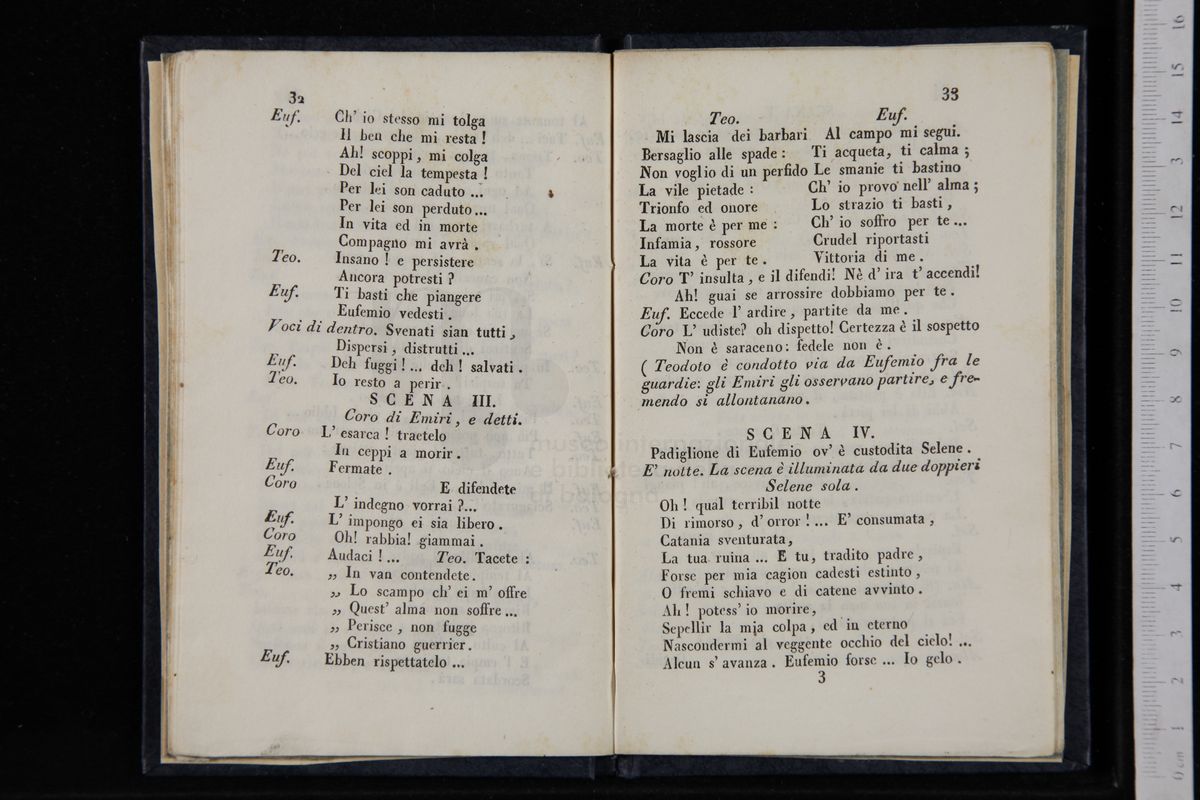 32
Euf. Ch' io stesso mi tolga
Il ben che mi resta !
Ah! scoppi, mi colga
Del ciel la tempesta !
Per lei son caduto ...
Per lei son perduto...
In vita ed in morte
Compagno mi avrà .
Teo. Insano ! e persistere
Ancora potresti ?
Euf. Ti basti che piangere
Eufemio vedesti .
Voci di dentro. Svenati sian tutti,
Dispersi, distrutti ...
Euf. Deh fuggi ! ... deh ! salvati .
Teo. Io resto a perir .
SCENA III.
Coro di Emiri, e detti.
Coro L' esarca ! traetelo
In ceppi a morir .
Euf. Fermate .
Coro E difendete
L' indegno vorrai ?...
Euf. L' impongo ei sia libero .
Coro Oh! rabbia! giammai .
Euf. Audaci ! ... Teo. Tacete :
Teo. „ In van contendete.
„ Lo scampo ch' ei m' offre
„ Quest' alma non soffre ...
„ Perisce , non fugge
„ Cristiano guerrier.
Euf. Ebben rispettatelo ...
33
Teo. Euf.
Mi lascia dei barbari Al campo mi segui.
Bersaglio alle spade : Ti acqueta, ti calma ;
Non voglio di un perfido Le smanie ti bastino
La vile pietade : Ch' io provo nell' alma ;
Trionfo ed onore Lo strazio ti basti ,
La morte è per me : Ch' io soffro per te ...
Infamia, rossore Crudel riportasti
La vita è per te . Vittoria di me .
Coro T' insulta , e il difendi! Nè d' ira t' accendi!
Ah! guai se arrossire dobbiamo per te .
Euf. Eccede l' ardire, partite da me .
Coro L' udiste? oh dispetto! Certezza è il sospetto
Non è saraceno: fedele non è .
( Teodoto è condotto via da Eufemio fra le
guardie: gli Emiri gli osservano partire, e fre-
mendo si allontanano.
SCENA IV.
Padiglione di Eufemio ov' è custodita Selene .
E' notte. La scena è illuminata da due doppieri
Selene sola .
Oh ! qual terribil notte
Di rimorso , d' orror ! ... E' consumata ,
Catania sventurata,
La tua ruina ... E tu, tradito padre ,
Forse per mia cagion cadesti estinto ,
O fremi schiavo e di catene avvinto .
Ah ! potess' io morire,
Sepellir la mia colpa , ed in eterno
Nascondermi al veggente occhio del cielo! ...
Alcun s' avanza . Eufemio forse ... Io gelo .
3